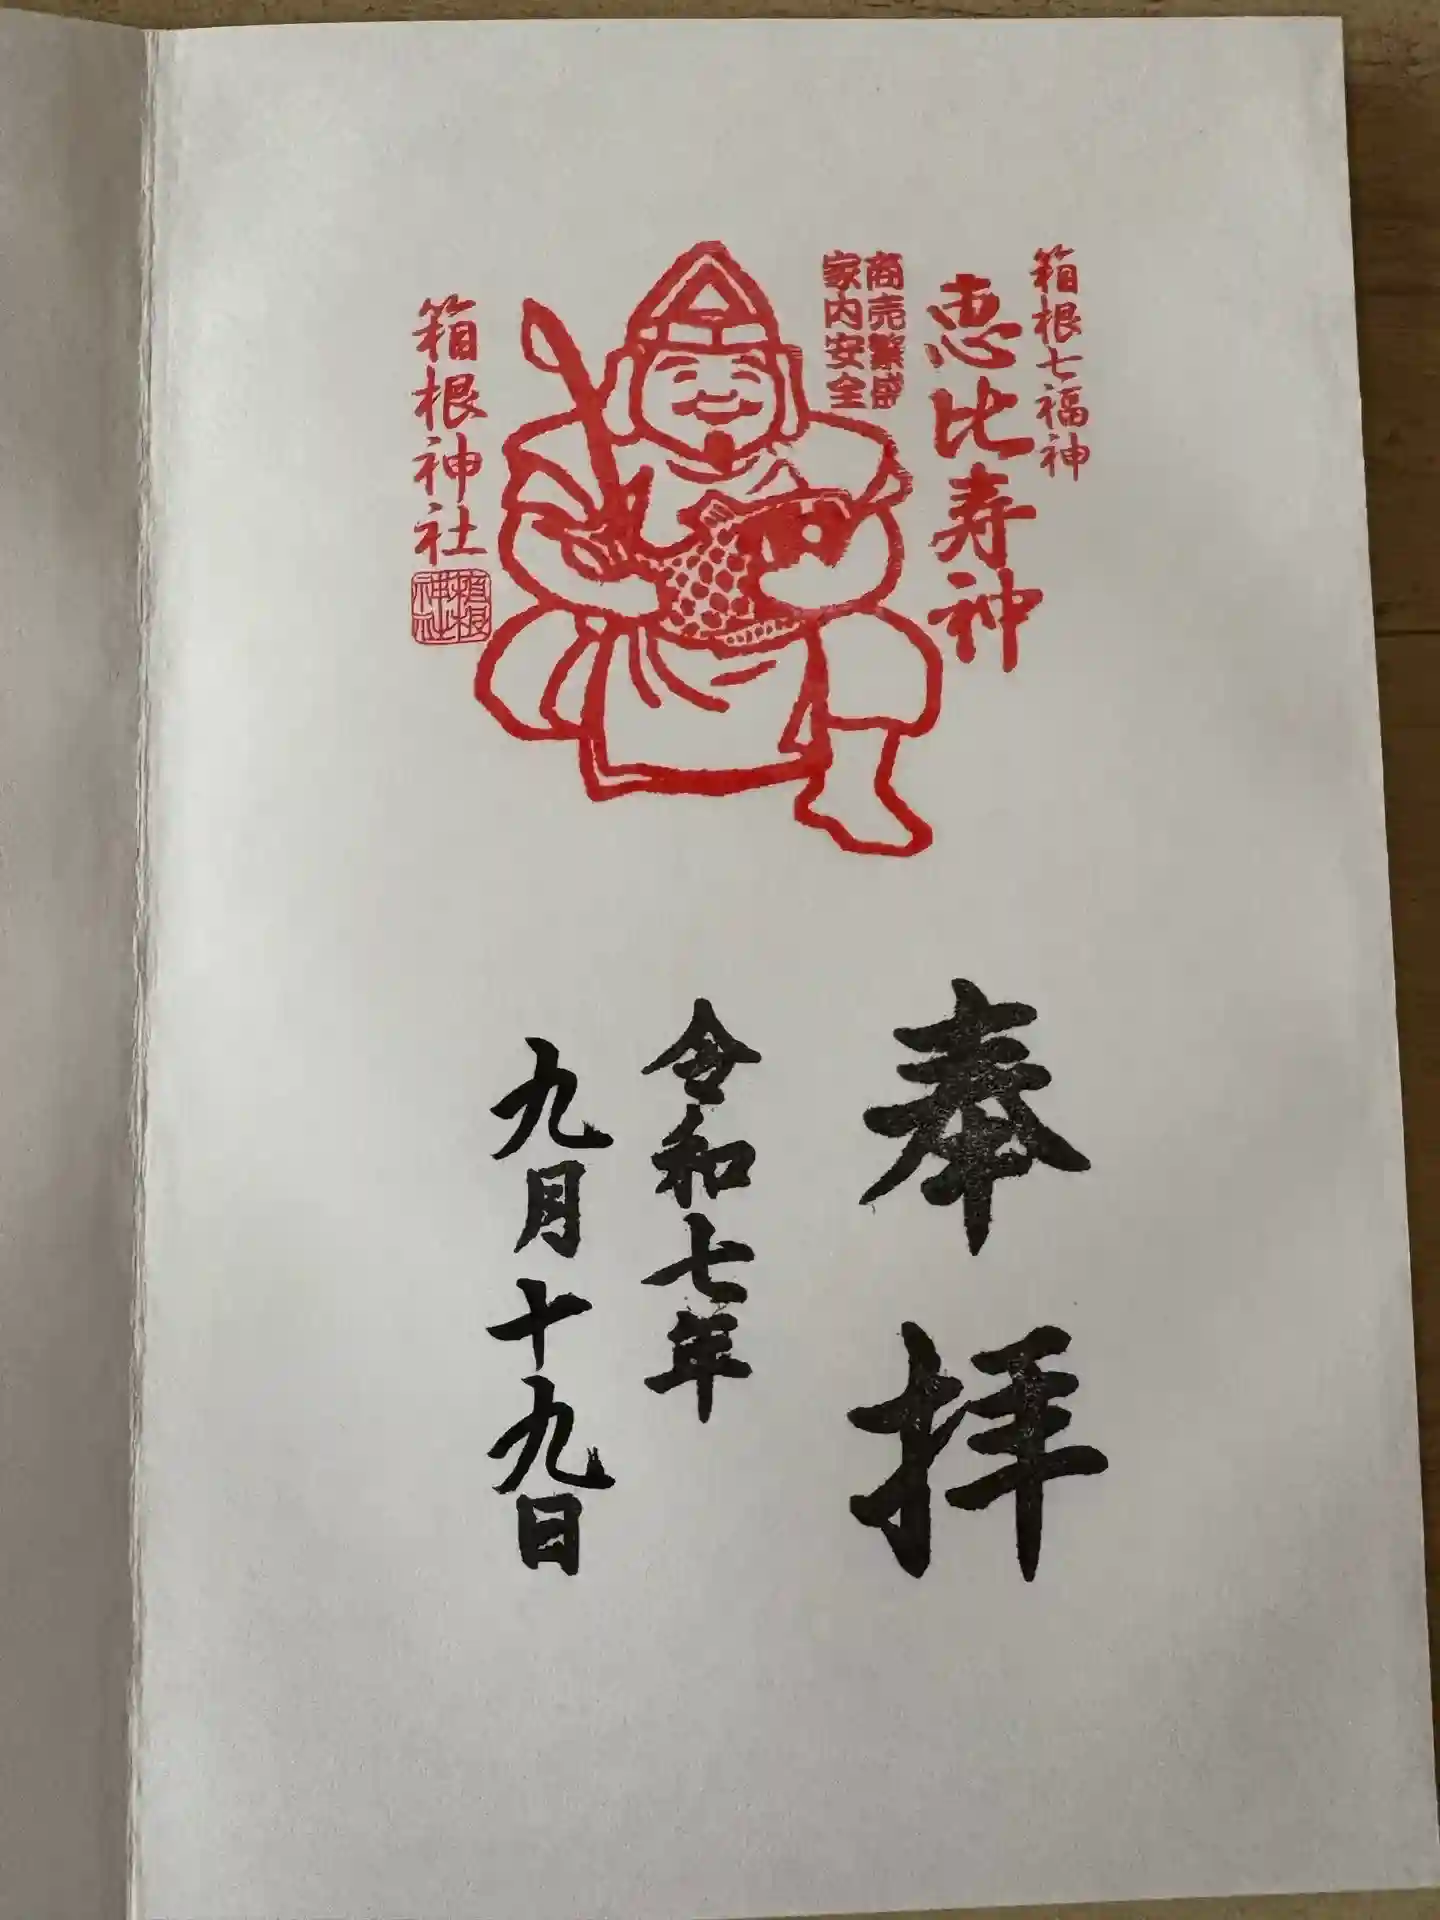 箱根七福神
恵比寿神
商売繁盛
家内安全
箱根神社
箱根
神社
奉拝
令和七年
九月十九日